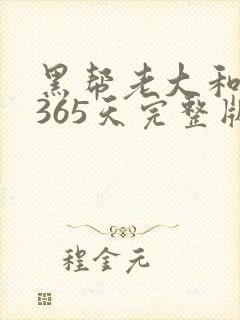 黑帮老大和
365天完整版
程金元